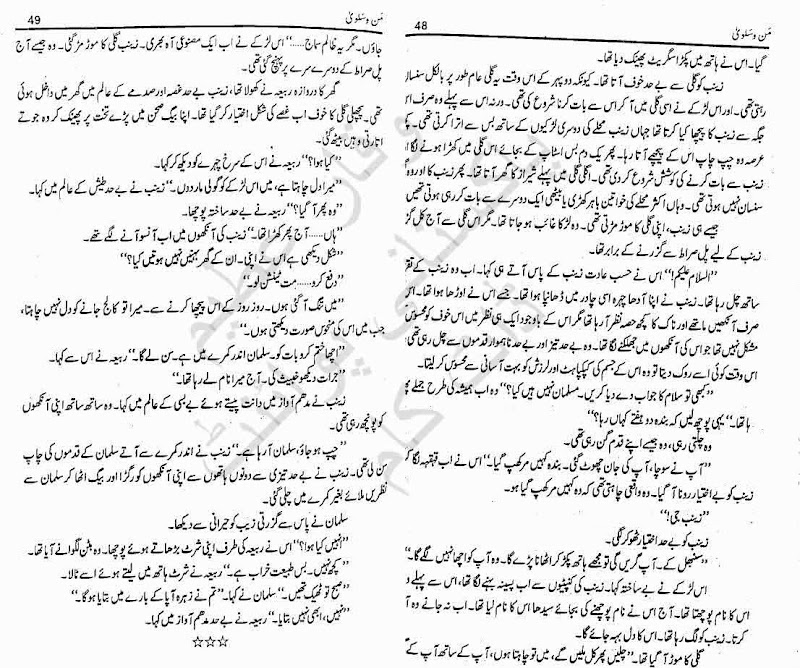 من و سلویٰ
48
گیا۔ اس نے ہاتھ میں پکڑا سگریٹ پھینک دیا تھا۔
زینب کو گلی سے بے حد خوف آتا تھا۔ کیونکہ دوپہر کے اس وقت یہ گلی عام طور پر بالکل سنسان
رہتی تھی۔ اور اس لڑکے نے اسی گلی میں آ کر اس سے بات کرنا شروع کی تھی۔ ورنہ اس سے پہلے وہ صرف اس
جگہ سے زینب کا پیچھا کیا کرتا تھا جہاں زینب محلے کی دوسری لڑکیوں کے ساتھ بس سے اترا کرتی تھی۔
عرصہ وہ چپ چاپ اس کے پیچھے آتا رہا۔ پھر یک دم بس اسٹاپ کے بجائے اس گلی میں کھڑا ہونے لگا
زینب سے بات کرنے کی کوشش شروع کر دی تھی۔ اگلی گلی میں پہلے شیراز کا گھر آتا تھا۔ پھر زینب کا اور وہ
سنسان نہیں ہوتی تھی۔ وہاں اکثر محلے کی خواتین باہر کھڑی یا بیٹھی ایک دوسرے سے بات کر رہی ہوتی تھیں
جیسے ہی زینب، اپنی گلی کا موڑ مڑتی تھی۔ وہ لڑکا غائب ہو جاتا تھا۔ مگر اس گلی سے آج کل گزرنا
زینب کے لیے پل صراط سے گزرنے کے برابر تھا۔
"السلام علیکم!" اس نے حسب عادت زینب کے پاس آتے ہی کہا۔ اب وہ زینب کے
ساتھ چل رہا تھا۔ زینب نے اپنا آدھا چہرہ اسی چادر میں ڈھانپا ہوا تھا۔ جسے اس نے اوڑھا ہوا تھا۔
صرف آنکھیں ماتھے اور ناک کا کچھ حصہ نظر آ رہا تھا مگر اس کے باوجود ایک ہی نظر میں اس خوف کو محسوس
مشکل نہیں تھا جو اس کی آنکھوں میں جھلکنے لگا تھا۔ وہ بے حد تیز اور بے حد ناہموار قدموں سے چل رہی تھی
اس وقت کوئی اسے روک دیتا تو وہ اس کے جسم کی کپکپاہٹ اور لرزش کو بہت آسانی سے محسوس کر لیتا۔
"کبھی تو سلام کا جواب دے دیا کریں۔ مسلمان نہیں ہیں کیا؟" وہ اب ہمیشہ کی طرح جملے
رہا تھا۔ "یہی پوچھ لیں کہ بندہ دو ہفتے کہاں رہا؟"
وہ چلتی رہی، وہ جیسے اپنے قدم گن رہی تھی۔
"آپ نے سوچا، آپ کی جان چھوٹ گئی۔ بندہ کہیں مر کھپ گیا۔" اس نے اب قہقہہ لگا
زینب کو بے اختیار رونا آ گیا۔ وہ واقعی چاہتی تھی کہ وہ کہیں مر کھپ گیا ہو۔
"زینب جی!"
زینب کو بے حد اختیار ٹھوکر لگی۔
"سنبھل کے۔ آپ گریں گی تو مجھے ہاتھ پکڑ کر اٹھانا پڑے گا۔ وہ آپ کو اچھا نہیں لگے گا۔"
اس لڑکے نے بے ساختہ کہا۔ زینب کی کنپٹیوں سے اب پسینہ بہنے لگا تھا، اس سے پہلے وہ
اس کا نام پوچھتا تھا۔ آج اس نے نام پوچھنے کی بجائے سیدھا اس کا نام لیا تھا۔ اب نہ جانے وہ آ
کرتا۔ زینب کو لگ رہا تھا۔ اس کا دل بہہ جائے گا۔
گلی کا موڑ آ گیا تھا۔ "چلیں پھر کل ملیں گے، میں تو چاہتا ہوں، آپ کے ساتھ آپ کے گھر
49
من و سلویٰ
جاؤں۔ مگر یہ ظالم سماج……" اس لڑکے نے اب ایک مصنوعی آہ بھری۔ زینب گلی کا موڑ مڑ گئی۔ وہ جیسے آج
پل صراط کے دوسرے سرے پر پہنچ گئی تھی۔
گھر کا دروازہ ربیعہ نے کھولا تھا، زینب بے حد غصہ اور صدمے کے عالم میں گھر میں داخل ہوئی
تھی۔ پچھلی گلی کا خوف اب غصے کی شکل اختیار کر گیا تھا۔ اپنا بیگ صحن میں پڑے تخت پر پھینک کر وہ جوتے
اتارتی وہیں بیٹھ گئی۔
"کیا ہوا؟" ربیعہ نے اس کے سرخ چہرے کو دیکھ کر کہا۔
"میرا دل چاہتا ہے، میں اس لڑکے کو گولی مار دوں۔" زینب نے بے حد طیش کے عالم میں کہا۔
"وہ پھر آ گیا؟" ربیعہ نے بے حد ساختہ پوچھا۔
"ہاں…… آج پھر کھڑا تھا۔" زینب کی آنکھوں میں اب آنسو آنے لگے تھے۔
"شکل دیکھی ہے اس نے اپنی۔ ان کے گھر بہنیں نہیں ہوتیں کیا؟"
"دفع کرو…… مت ٹینشن لو۔"
"میں تنگ آ گئی ہوں۔ روز روز کے اس پیچھا کرنے سے۔ میرا تو کالج جانے کو دل نہیں چاہتا،
جب میں اس کی منحوس صورت دیکھتی ہوں۔"
"اچھا ختم کرو بات کو۔ سلمان اندر کمرے میں ہے۔ سن لے گا۔" ربیعہ نے اس سے کہا۔
"جرات دیکھو خبیث کی۔ آج میرا نام لے رہا تھا۔"
زینب نے مدھم آواز میں دانت پیستے ہوئے بے بسی کے عالم میں کہا۔ وہ ساتھ ساتھ اپنی آنکھوں
کو پونچھ رہی تھی۔
"چپ ہو جاؤ، سلمان آ رہا ہے۔" زینب نے اندر کمرے سے آتے سلمان کے قدموں کی چاپ
سن لی تھی۔ زینب نے بے حد تیزی سے دونوں ہاتھوں سے اپنی آنکھوں کو رگڑا اور بیگ اٹھا کر سلمان سے
نظریں ملائے بغیر کمرے میں چلی گئی۔
سلمان نے پاس سے گزرتی زیب کو حیرانی سے دیکھا۔
"انہیں کیا ہوا؟" اس نے ربیعہ کی طرف اپنی شرٹ بڑھاتے ہوئے پوچھا۔ وہ بٹن لگوانے آیا تھا۔
"کچھ نہیں۔ بس طبیعت خراب ہے۔" ربیعہ نے شرٹ ہاتھ میں لیتے ہوئے اسے ٹالا۔
"صبح تو ٹھیک تھیں۔" سلمان نے کہا۔ "تم نے زہرہ آپا کے بارے میں بتایا ہو گا۔"
"نہیں، ابھی نہیں بتایا۔" ربیعہ نے بے حد مدھم آواز میں کہا۔
☆☆☆